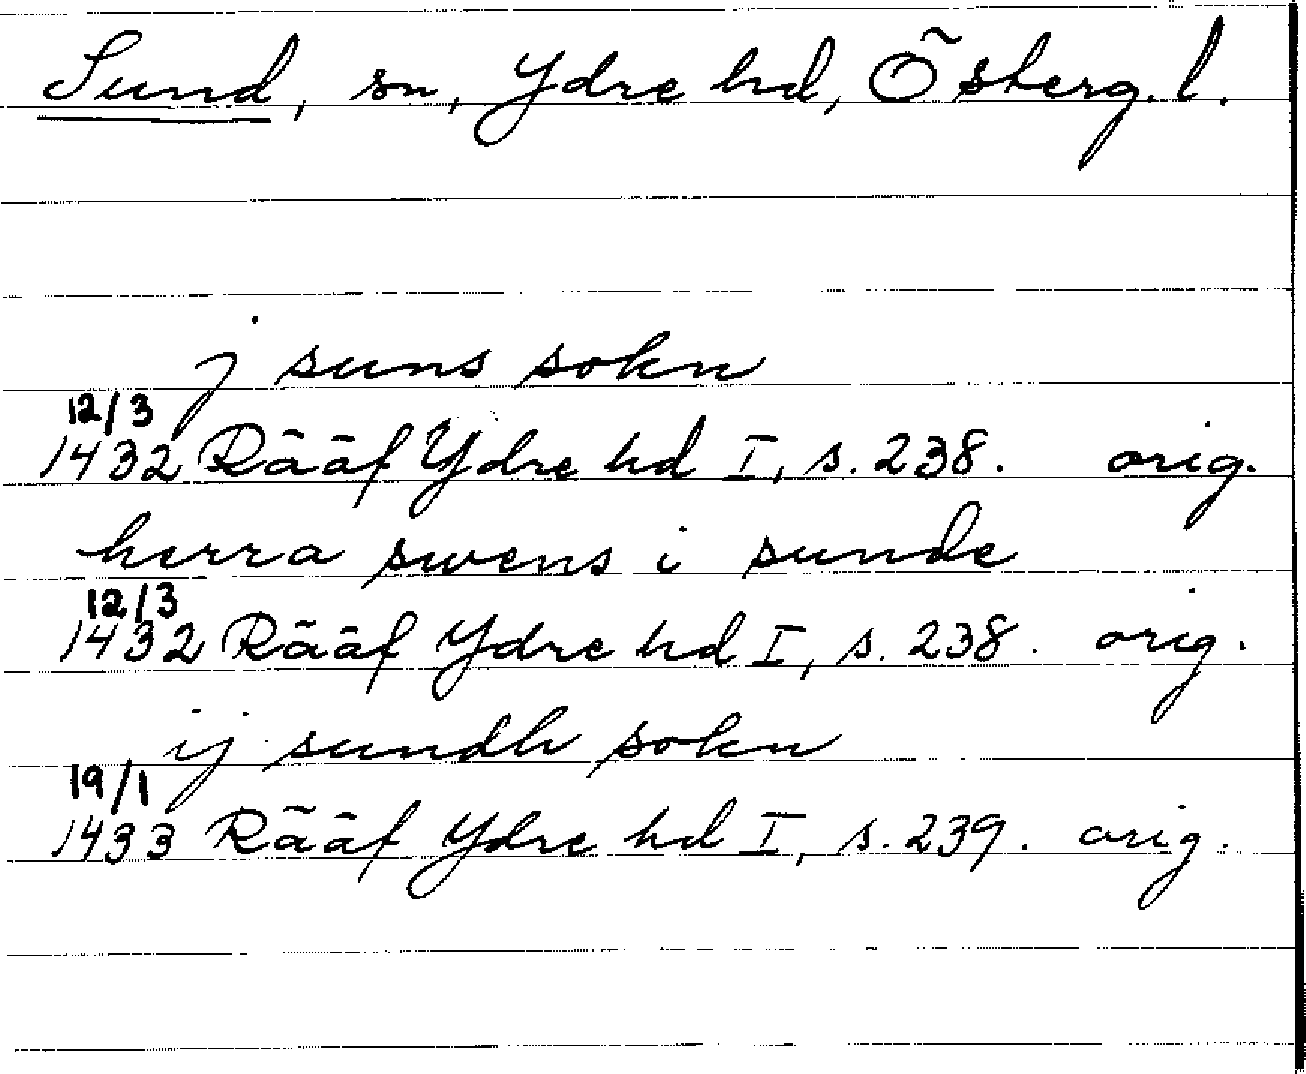 Sund, sn, Ydre hd, Österg. l.
j suns sokn
12/3
1432 Rääf Ydre hd I, s. 238. orig.
herra swens i sunde
12/3
1432 Rääf Ydre hd I, s. 238. orig.
ij sundh sokn
19/1
1433 Rääf Ydre hd I, s. 239. orig.